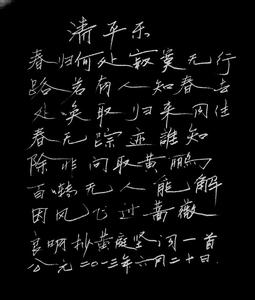 清平乐
春归何处寂寞无行
路若有人知春去
处唤取归来同住
春无踪迹谁知
除非问取黄鹂
百啭无人能解
因风飞过蔷薇
抄黄庭坚词一首
公元二〇一三年六月二十日